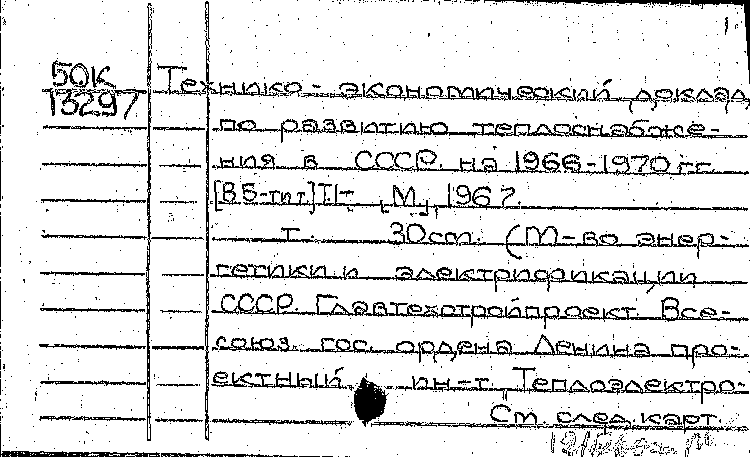 1.
50К
13297
Технико-экономический доклад
по развитию теплоснабже-
ния в СССР на 1966-1970 гг.
[В 5-ти т.] Т.1- , М., 1967.
т. 30см. (М-во энер-
гетики и электрификации
СССР. Главтехстройпроект. Все-
союз. гос. ордена Ленина про-
ектный ин-т Теплоэлектро-
См. след. карт.